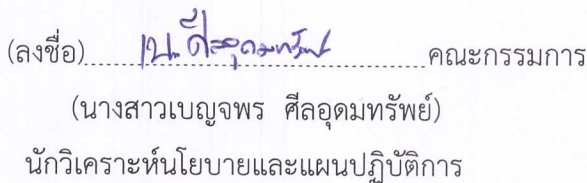 (ลงชื่อ) เบ. ศีลอุดมทรัพย์ คณะกรรมการ
(นางสาวเบญจพร ศีลอุดมทรัพย์)
นักวิเคราะห์นโยบายและแผนปฏิบัติการ